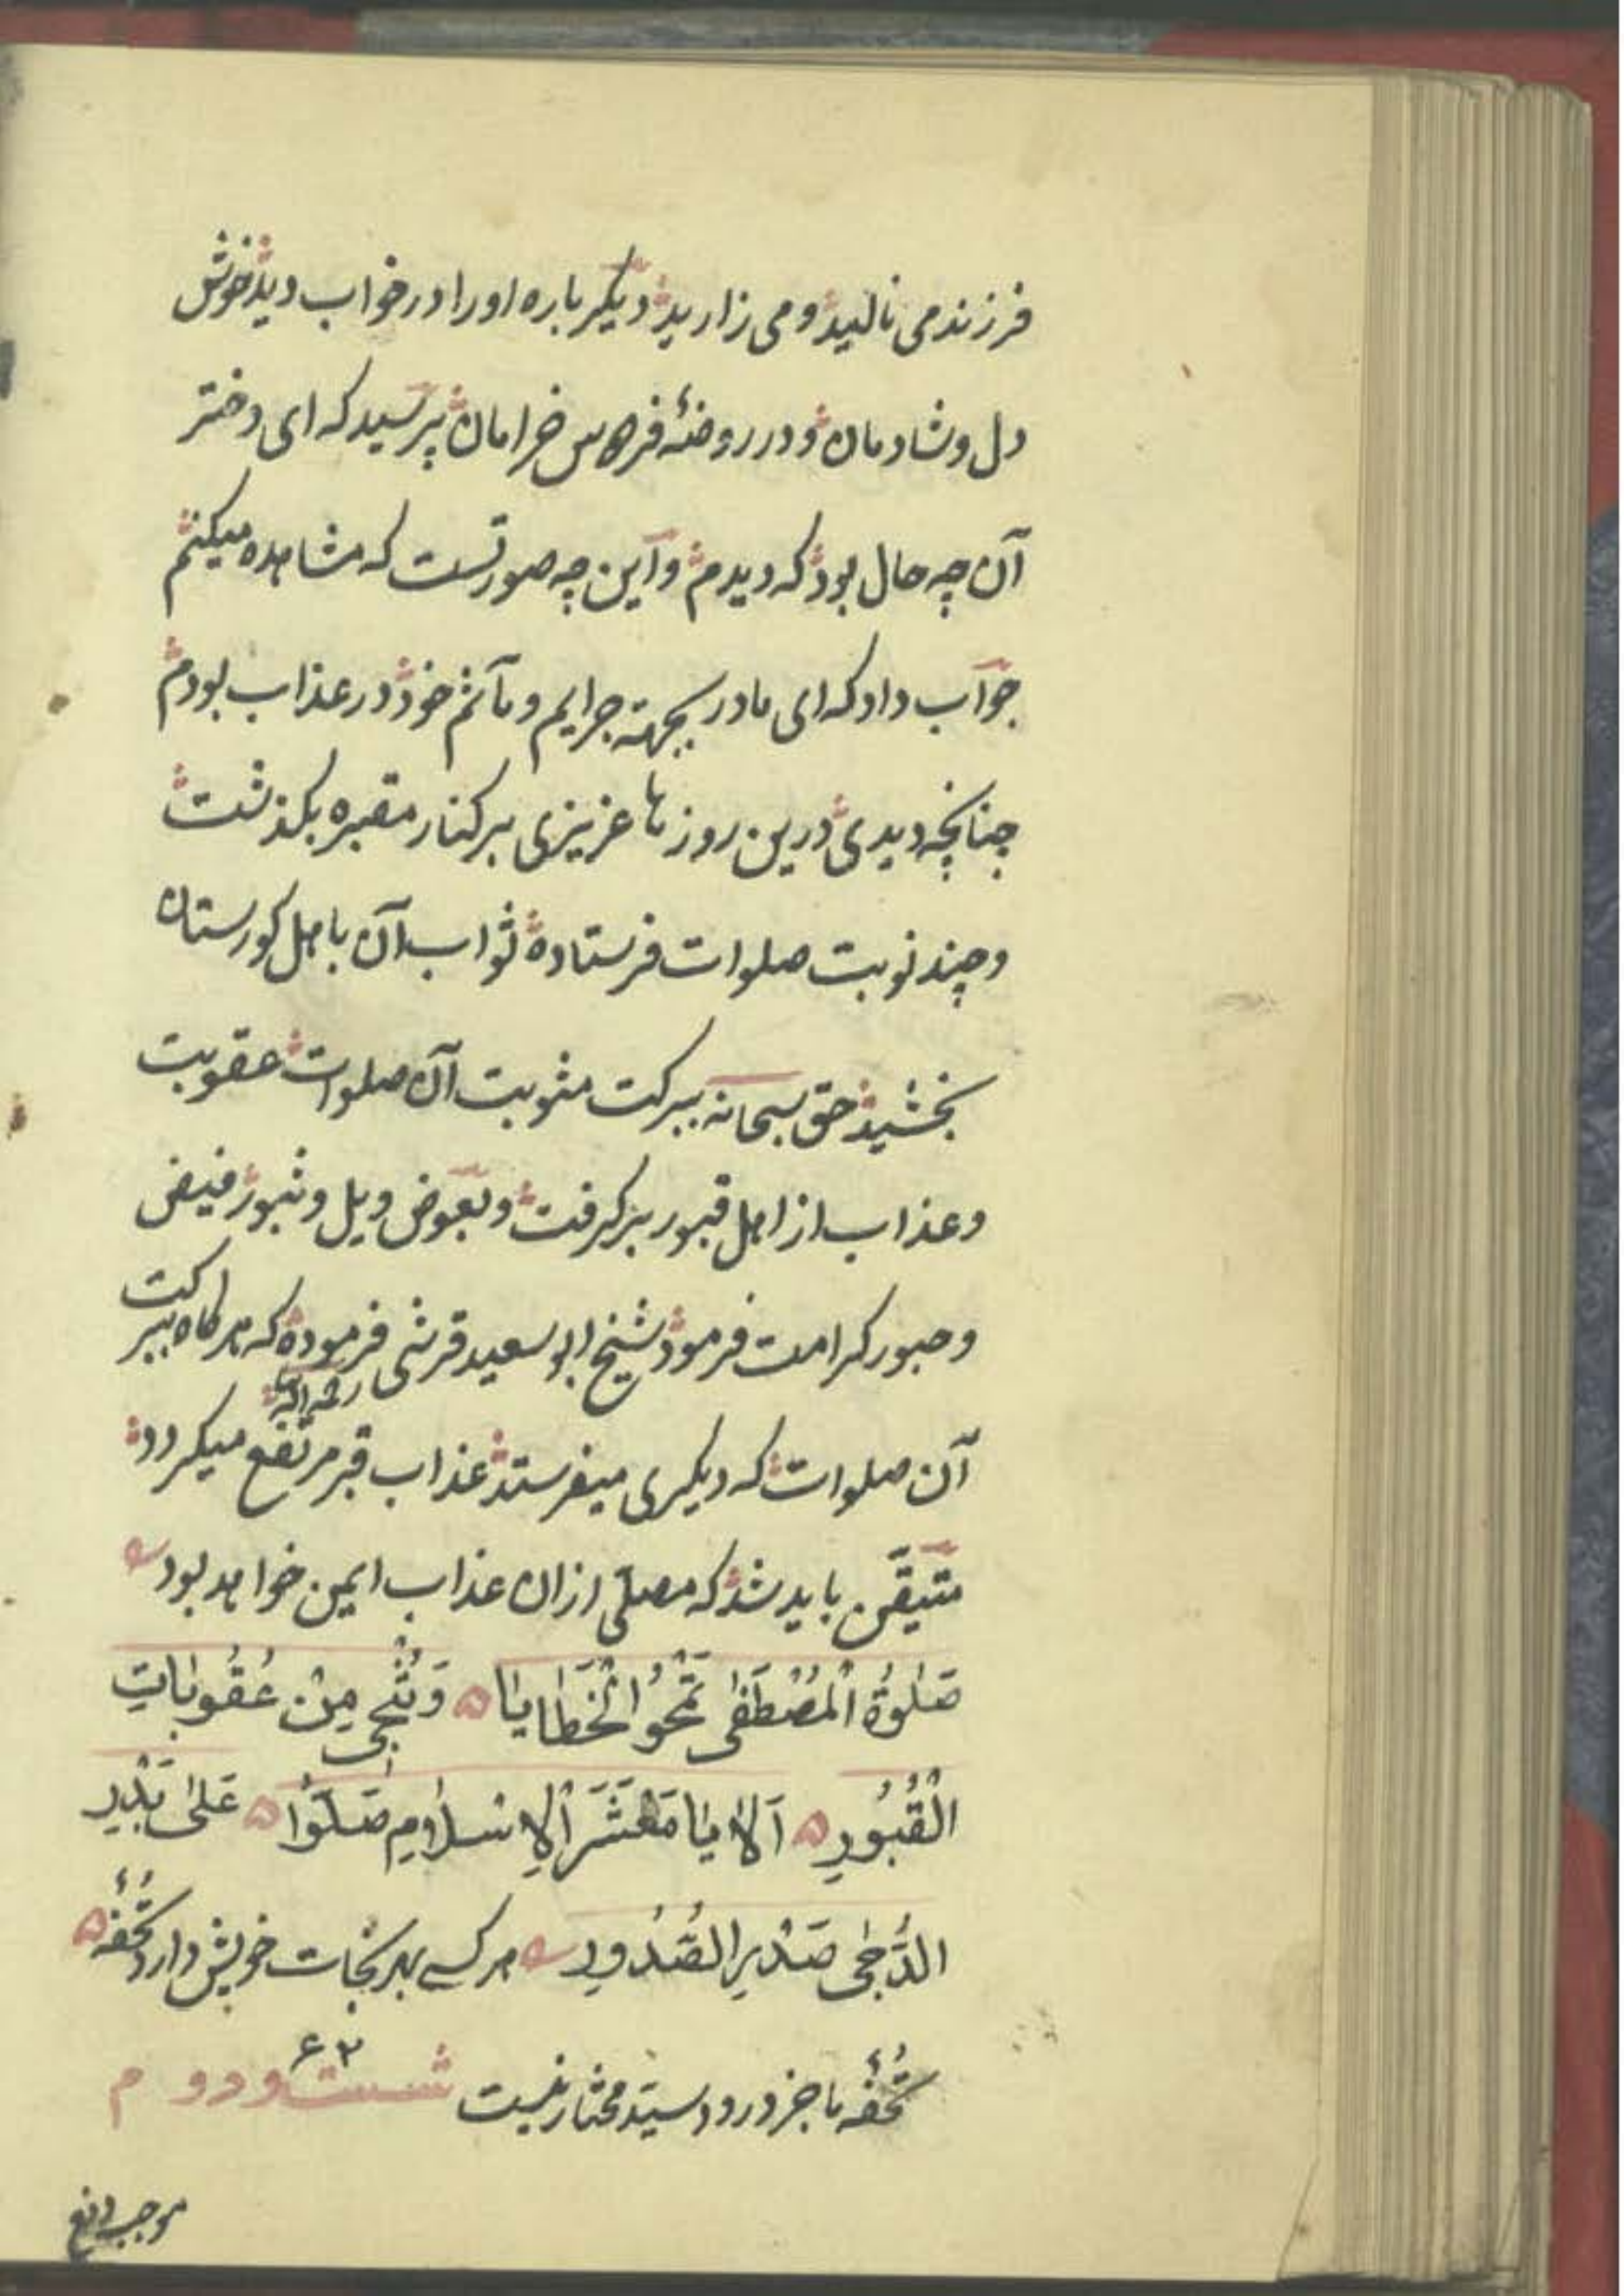 فرزند می نالید و می زارید دیگر باره او را در خواب دید خوش
دل و شادمان و در روضهٔ فردوس خرامان پرسید که ای دختر
آن چه حال بود که دیدم و این چه صورتست که مشاهده میکنم
جواب داد که ای مادر بجهة جرایم و مآثم خود در عذاب بودم
چنانچه دیدی درین روزها عزیزی بر کنار مقبره بگذشت
و چند نوبت صلوات فرستاده ثواب آن باهل کورستان
بخشید حق سبحانه ببرکت مثوبت آن صلوات عقوبت
و عذاب از اهل قبور برگرفت و بعوض ویل و ثبور فیض
و حبور کرامت فرمود شیخ ابو سعید قرشی رحمه الله فرموده که هرگاه ببرکت
آن صلوات که دیگری میفرستد عذاب قبر مرتفع میگردد
متیقّن باید شد که مصلّی ازان عذاب ایمن خواهد بود
صَلٰوةُ الْمُصْطَفٰی تَمْحُو الْخَطَایَا ۵ وَ تُنْجِی مِنْ عُقُوبَاتِ
الْقُبُورِ ۵ اَلَا یَا مَعْشَرَ الْاِسْلَامِ صَلُّوْا ۵ عَلٰی بَدْرِ
الدُّجٰی صَدْرِ الصُّدُورِ هر کسی بهر نجات خویش دارد تُحفهٔ ۵
تُحفهٔ ما جز درود سیّد مختار نیست شست و دوم ۶۲
موجب دفع